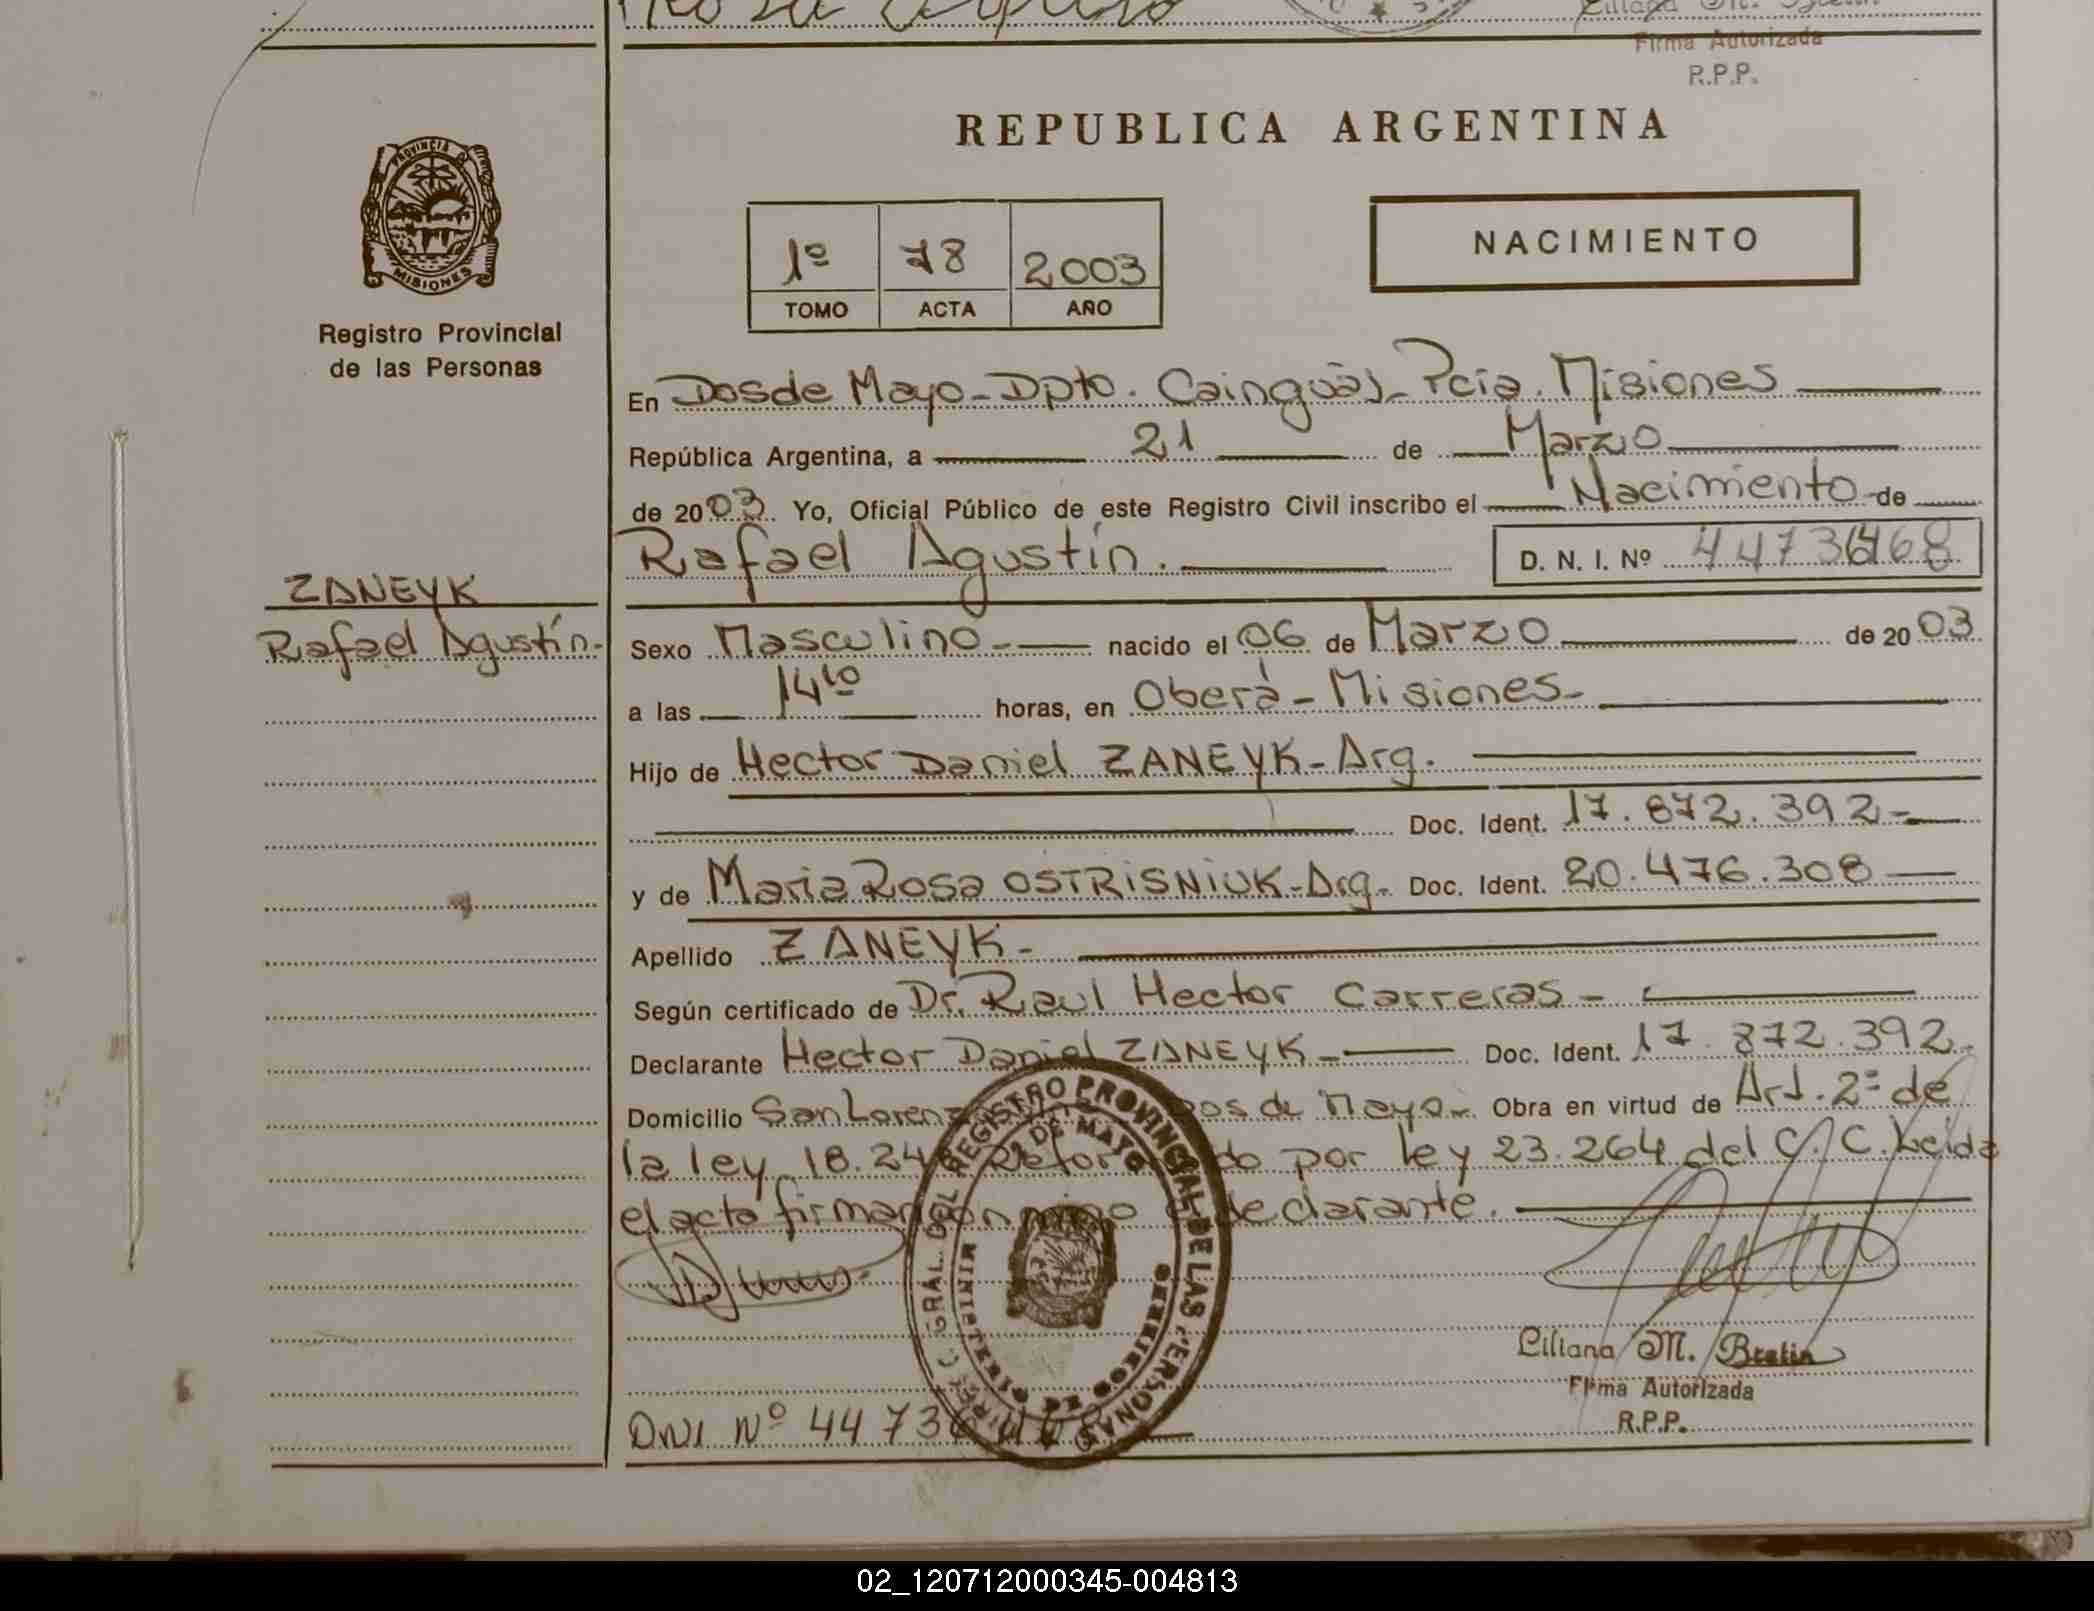 Rosa
Liliana M.
Firma Autorizada
R.P.P.
PROVINCIA DE
MISIONES
Registro Provincial
de las Personas
REPUBLICA ARGENTINA
1º 78 2003
TOMO ACTA AÑO
NACIMIENTO
En Dos de Mayo - Dpto. Cainguás - Pcia. Misiones
República Argentina, a 21 de Marzo
de 2003. Yo, Oficial Público de este Registro Civil inscribo el Nacimiento de
Rafael Agustín. D. N. I. Nº 44736468
ZANEYK
Rafael Agustín.-
Sexo Masculino - nacido el 06 de Marzo de 2003
a las 14 10 horas, en Oberá - Misiones -
Hijo de Hector Daniel ZANEYK - Arg.
Doc. Ident. 17.872.392 -
y de Maria Rosa OSTRISNIUK - Arg. Doc. Ident. 20.476.308
Apellido ZANEYK -
Según certificado de Dr. Raul Hector Carreras -
Declarante Hector Daniel ZANEYK - Doc. Ident. 17.872.392 -
Domicilio San Lorenzo Dos de Mayo - Obra en virtud de Art. 2º de
la ley 18.248 Reformado por ley 23.264 del C. C. Leida
el acta firman conmigo el declarante.
DIREC. GRAL. DEL REGISTRO PROVINCIAL DE LAS PERSONAS
2 DE MAYO
MINISTERIO DE GOBIERNO
Liliana M. Bratin
Firma Autorizada
R.P.P.
DNI Nº 44736468
02_120712000345-004813